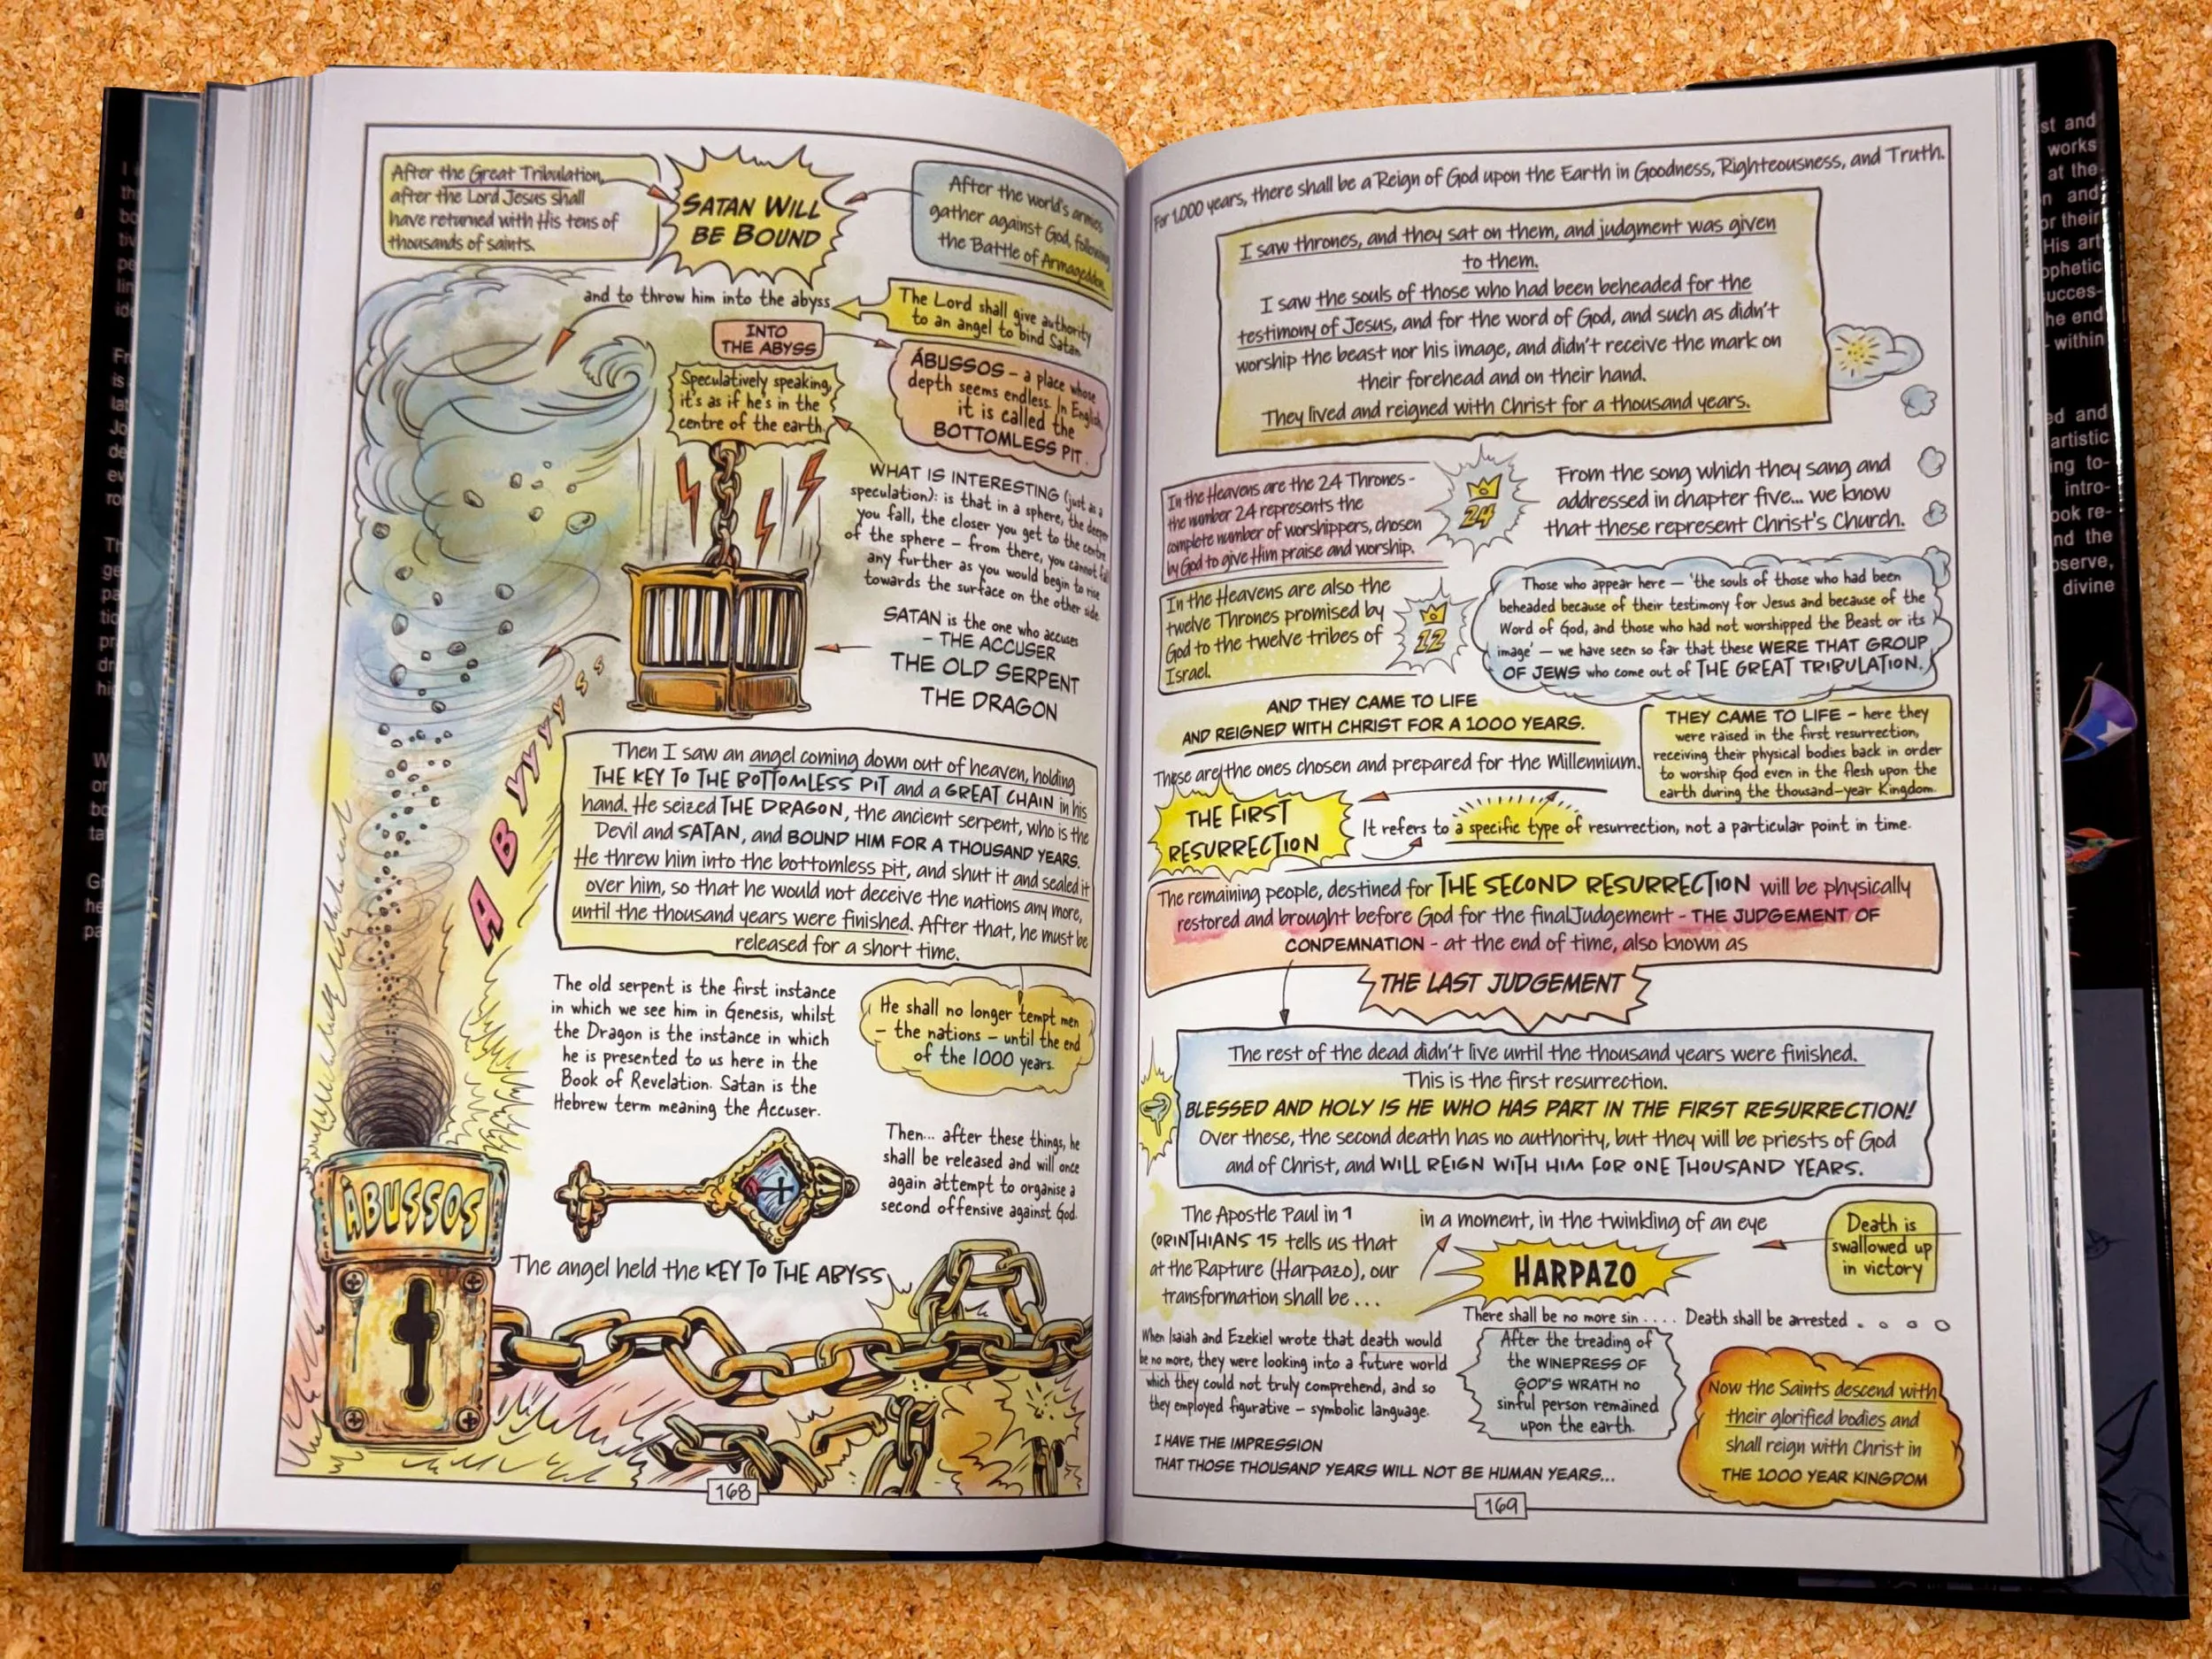 After the Great Tribulation,
after the Lord Jesus shall
have returned with His tens of
thousands of saints.
SATAN WILL
BE BOUND
After the world's armies
gather against God, following
the Battle of Armageddon.
and to throw him into the abyss
The Lord shall give authority
to an angel to bind Satan
INTO
THE ABYSS
ÁBUSSOS – a place whose
depth seems endless. In English,
it is called the
BOTTOMLESS PIT.
Speculatively speaking,
it's as if he's in the
centre of the earth.
WHAT IS INTERESTING (just as a
speculation): is that in a sphere, the deeper
you fall, the closer you get to the centre
of the sphere – from there, you cannot fall
any further as you would begin to rise
towards the surface on the other side.
SATAN is the one who accuses
– THE ACCUSER
THE OLD SERPENT
THE DRAGON
AByyyyyss
Then I saw an angel coming down out of heaven, holding
THE KEY TO THE BOTTOMLESS PIT and a GREAT CHAIN in his
hand. He seized THE DRAGON, the ancient serpent, who is the
Devil and SATAN, and BOUND HIM FOR A THOUSAND YEARS.
He threw him into the bottomless pit, and shut it and sealed it
over him, so that he would not deceive the nations any more,
until the thousand years were finished. After that, he must be
released for a short time.
The old serpent is the first instance
in which we see him in Genesis, whilst
the Dragon is the instance in which
he is presented to us here in the
Book of Revelation. Satan is the
Hebrew term meaning the Accuser.
He shall no longer tempt men
– the nations – until the end
of the 1000 years.
Then... after these things, he
shall be released and will once
again attempt to organise a
second offensive against God.
ÁBUSSOS
The angel held the KEY TO THE ABYSS
168
For 1,000 years, there shall be a Reign of God upon the Earth in Goodness, Righteousness, and Truth.
I saw thrones, and they sat on them, and judgment was given
to them.
I saw the souls of those who had been beheaded for the
testimony of Jesus, and for the word of God, and such as didn't
worship the beast nor his image, and didn't receive the mark on
their forehead and on their hand.
They lived and reigned with Christ for a thousand years.
In the Heavens are the 24 Thrones -
the number 24 represents the
complete number of worshippers, chosen
by God to give Him praise and worship.
24
From the song which they sang and
addressed in chapter five... we know
that these represent Christ's Church.
In the Heavens are also the
twelve Thrones promised by
God to the twelve tribes of
Israel.
12
Those who appear here – 'the souls of those who had been
beheaded because of their testimony for Jesus and because of the
Word of God, and those who had not worshipped the Beast or its
image' – we have seen so far that these WERE THAT GROUP
OF JEWS who come out of THE GREAT TRIBULATION.
AND THEY CAME TO LIFE
AND REIGNED WITH CHRIST FOR A 1000 YEARS.
These are the ones chosen and prepared for the Millennium.
THEY CAME TO LIFE – here they
were raised in the first resurrection,
receiving their physical bodies back in order
to worship God even in the flesh upon the
earth during the thousand-year Kingdom.
THE FIRST
RESURRECTION
It refers to a specific type of resurrection, not a particular point in time.
The remaining people, destined for THE SECOND RESURRECTION will be physically
restored and brought before God for the final Judgement - THE JUDGEMENT OF
CONDEMNATION - at the end of time, also known as
THE LAST JUDGEMENT
The rest of the dead didn't live until the thousand years were finished.
This is the first resurrection.
BLESSED AND HOLY IS HE WHO HAS PART IN THE FIRST RESURRECTION!
Over these, the second death has no authority, but they will be priests of God
and of Christ, and WILL REIGN WITH HIM FOR ONE THOUSAND YEARS.
The Apostle Paul in 1
CORINTHIANS 15 tells us that
at the Rapture (Harpazo), our
transformation shall be ...
in a moment, in the twinkling of an eye
HARPAZO
Death is
swallowed up
in victory
There shall be no more sin .... Death shall be arrested .
When Isaiah and Ezekiel wrote that death would
be no more, they were looking into a future world
which they could not truly comprehend, and so
they employed figurative – symbolic language.
After the treading of
the WINEPRESS OF
GOD'S WRATH no
sinful person remained
upon the earth.
Now the Saints descend with
their glorified bodies and
shall reign with Christ in
THE 1000 YEAR KINGDOM
I HAVE THE IMPRESSION
THAT THOSE THOUSAND YEARS WILL NOT BE HUMAN YEARS...
169
st and
works
at the
and
or their
His art
ophetic
ucces-
he end
within
ed and
artistic
ing to-
intro-
ook re-
nd the
oserve,
divine